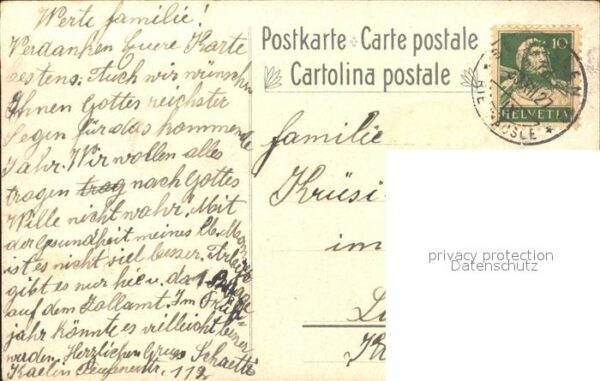 Werte Familie!
Verdanken Euere Karte
bestens. Auch wir wünschen
Ihnen Gottes reichster
Segen für das kommende
Jahr. Wir wollen alles
tragen trag nach Gottes
Wille nicht wahr! Mit
der Gesundheit meines lb. Mannes
ist es nicht viel besser. Arbeit
gibt es nur hie u. da 1
auf dem Zollamt. Im Früh-
jahr könnte es vielleicht besser
werden. Herzlichen Gruss
Kaelin 112
Postkarte Carte postale
Cartolina postale
10
HELVETIA
27
Familie
Krüsi
im
privacy protection
Datenschutz